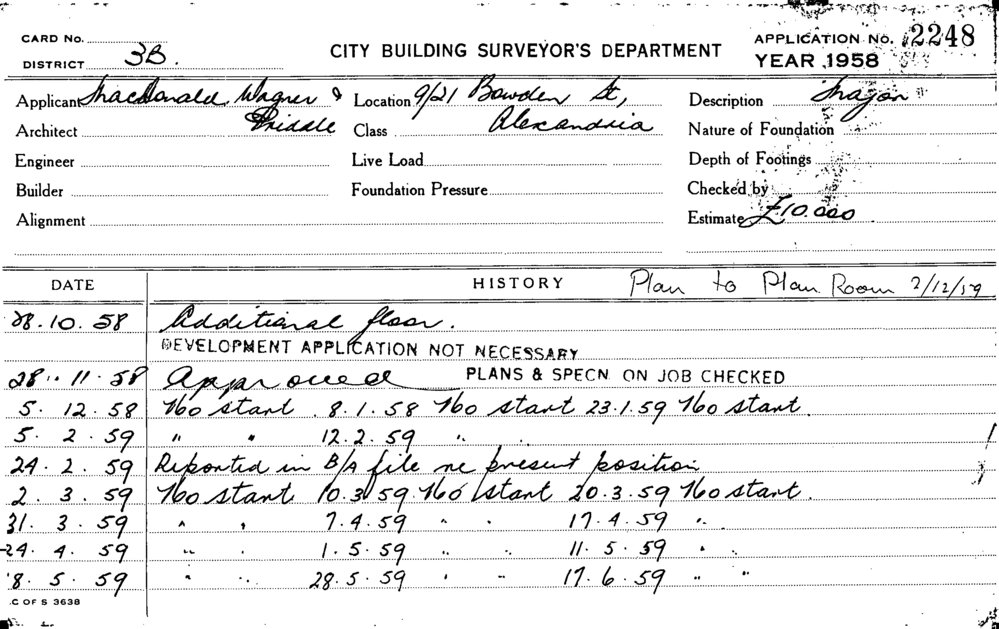 CARD No.
DISTRICT 3B.
CITY BUILDING SURVEYOR'S DEPARTMENT
APPLICATION No. 2248
YEAR 1958
Applicant MacDonald, Wagner &
Priddle
Architect
Engineer
Builder
Alignment
Location 9/21 Bowden St,
Alexandria
Class
Live Load
Foundation Pressure
Description
Nature of Foundation
Depth of Footings
Checked by
Estimate £10.000
DATE HISTORY Plan to Plan Room 2/12/59
28.10.58 Additional floor.
DEVELOPMENT APPLICATION NOT NECESSARY
28.11.58 Approved PLANS & SPECN ON JOB CHECKED
5.12.58 No start 8.1.58 No start 23.1.59 No start.
5.2.59 " " 12.2.59 "
24.2.59 Reported in B/A file re present position
2.3.59 No start 10.3.59 No start 20.3.59 No start.
31.3.59 " " 7.4.59 " " 17.4.59 "
24.4.59 " 1.5.59 " " 11.5.59 "
8.5.59 " " 28.5.59 " " 17.6.59 " "
C OF S 3638